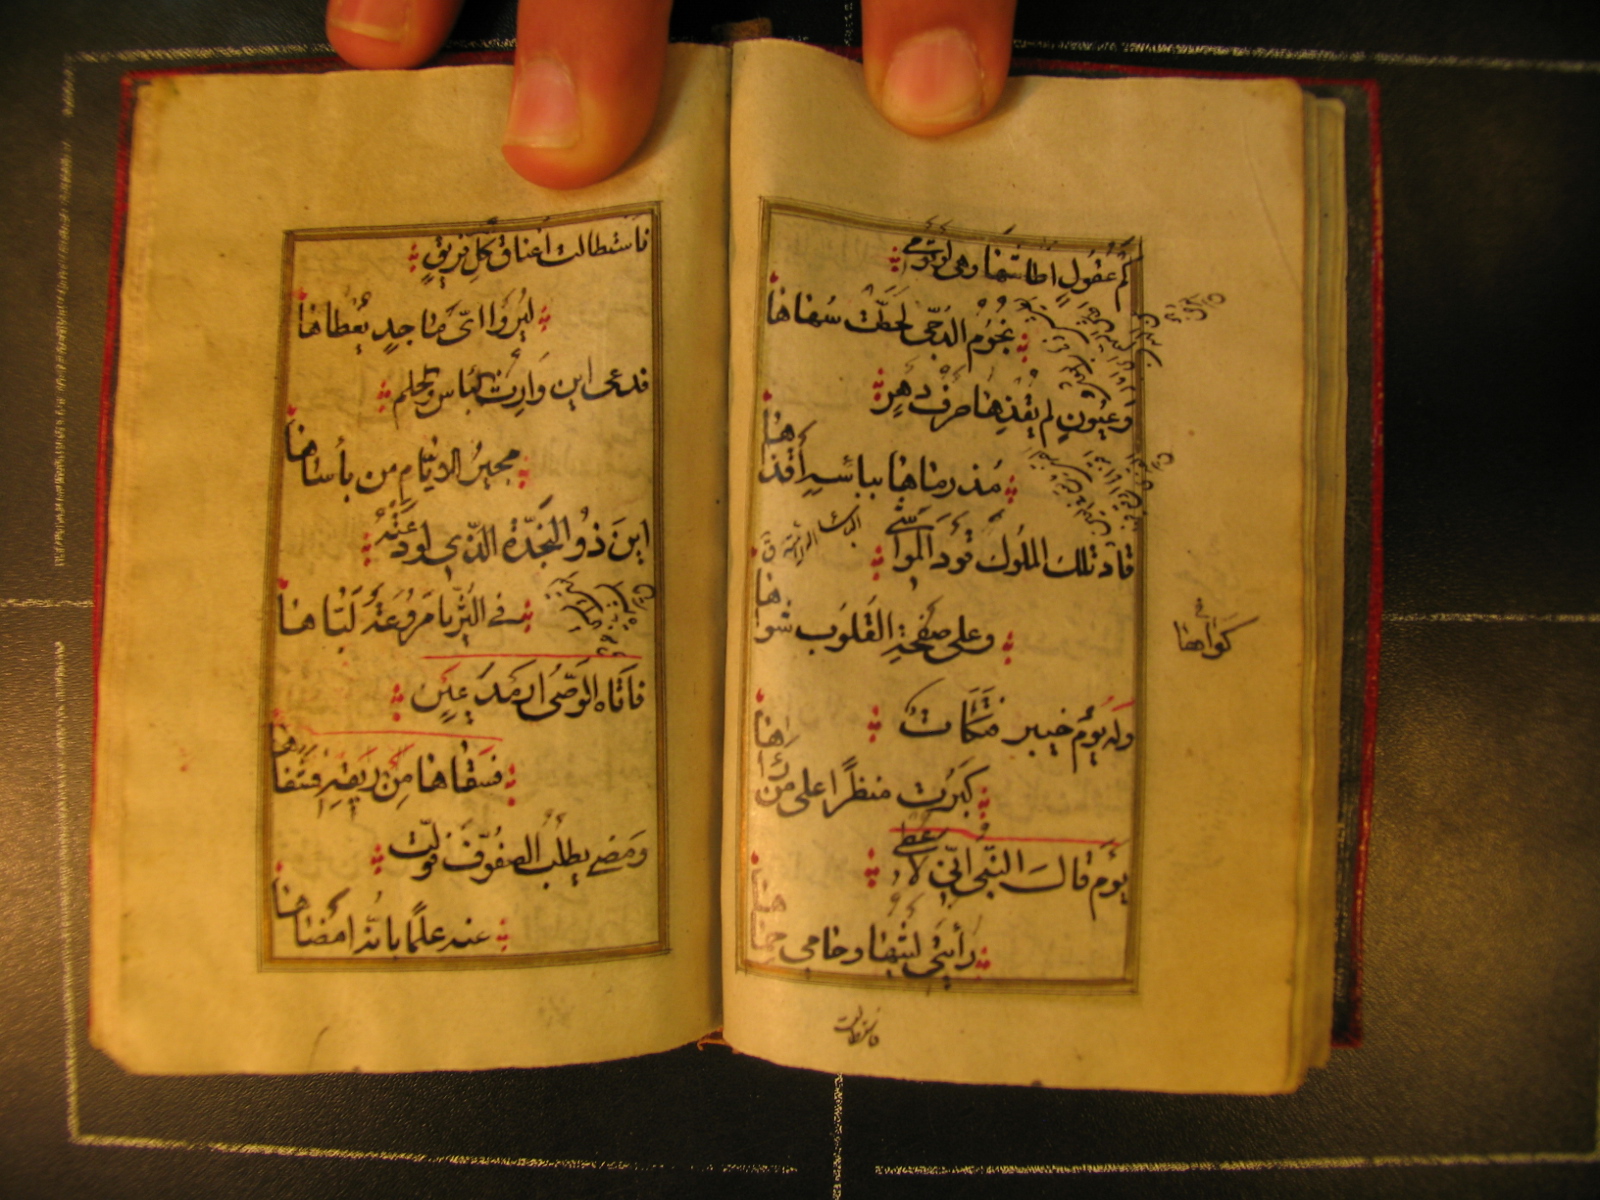 كم عقول اطاشها وهي لو ترمي
نجوم الدجى لحطت سهاها
وعيون لم يقذها صرف دهر
مذ رماها ببأسه أقذاها
قاد تلك الملوك قود المواشي
وعلى صفحة القلوب شواها
كواها
وله يوم خيبر فتكات
كبرت منظرا على من رآها
يوم قال النبي اني لاعطي
رأيتي ليثها وحامي حماها
فاستطالت
فاستطالت اعناق كل فريق
ليروا اىّ ماجد يعطاها
فدعى اين وارث البأس والحلم
مجير الايام من بأساها
اين ذو النجدة الذي لو دعته
في الثريا مروعة لبّاها
فاتاه الوصي ارمد عين
فسقاها من ريقه فشفاها
ومضى يطلب الصفوف فولت
عنه علما بانه امضاها